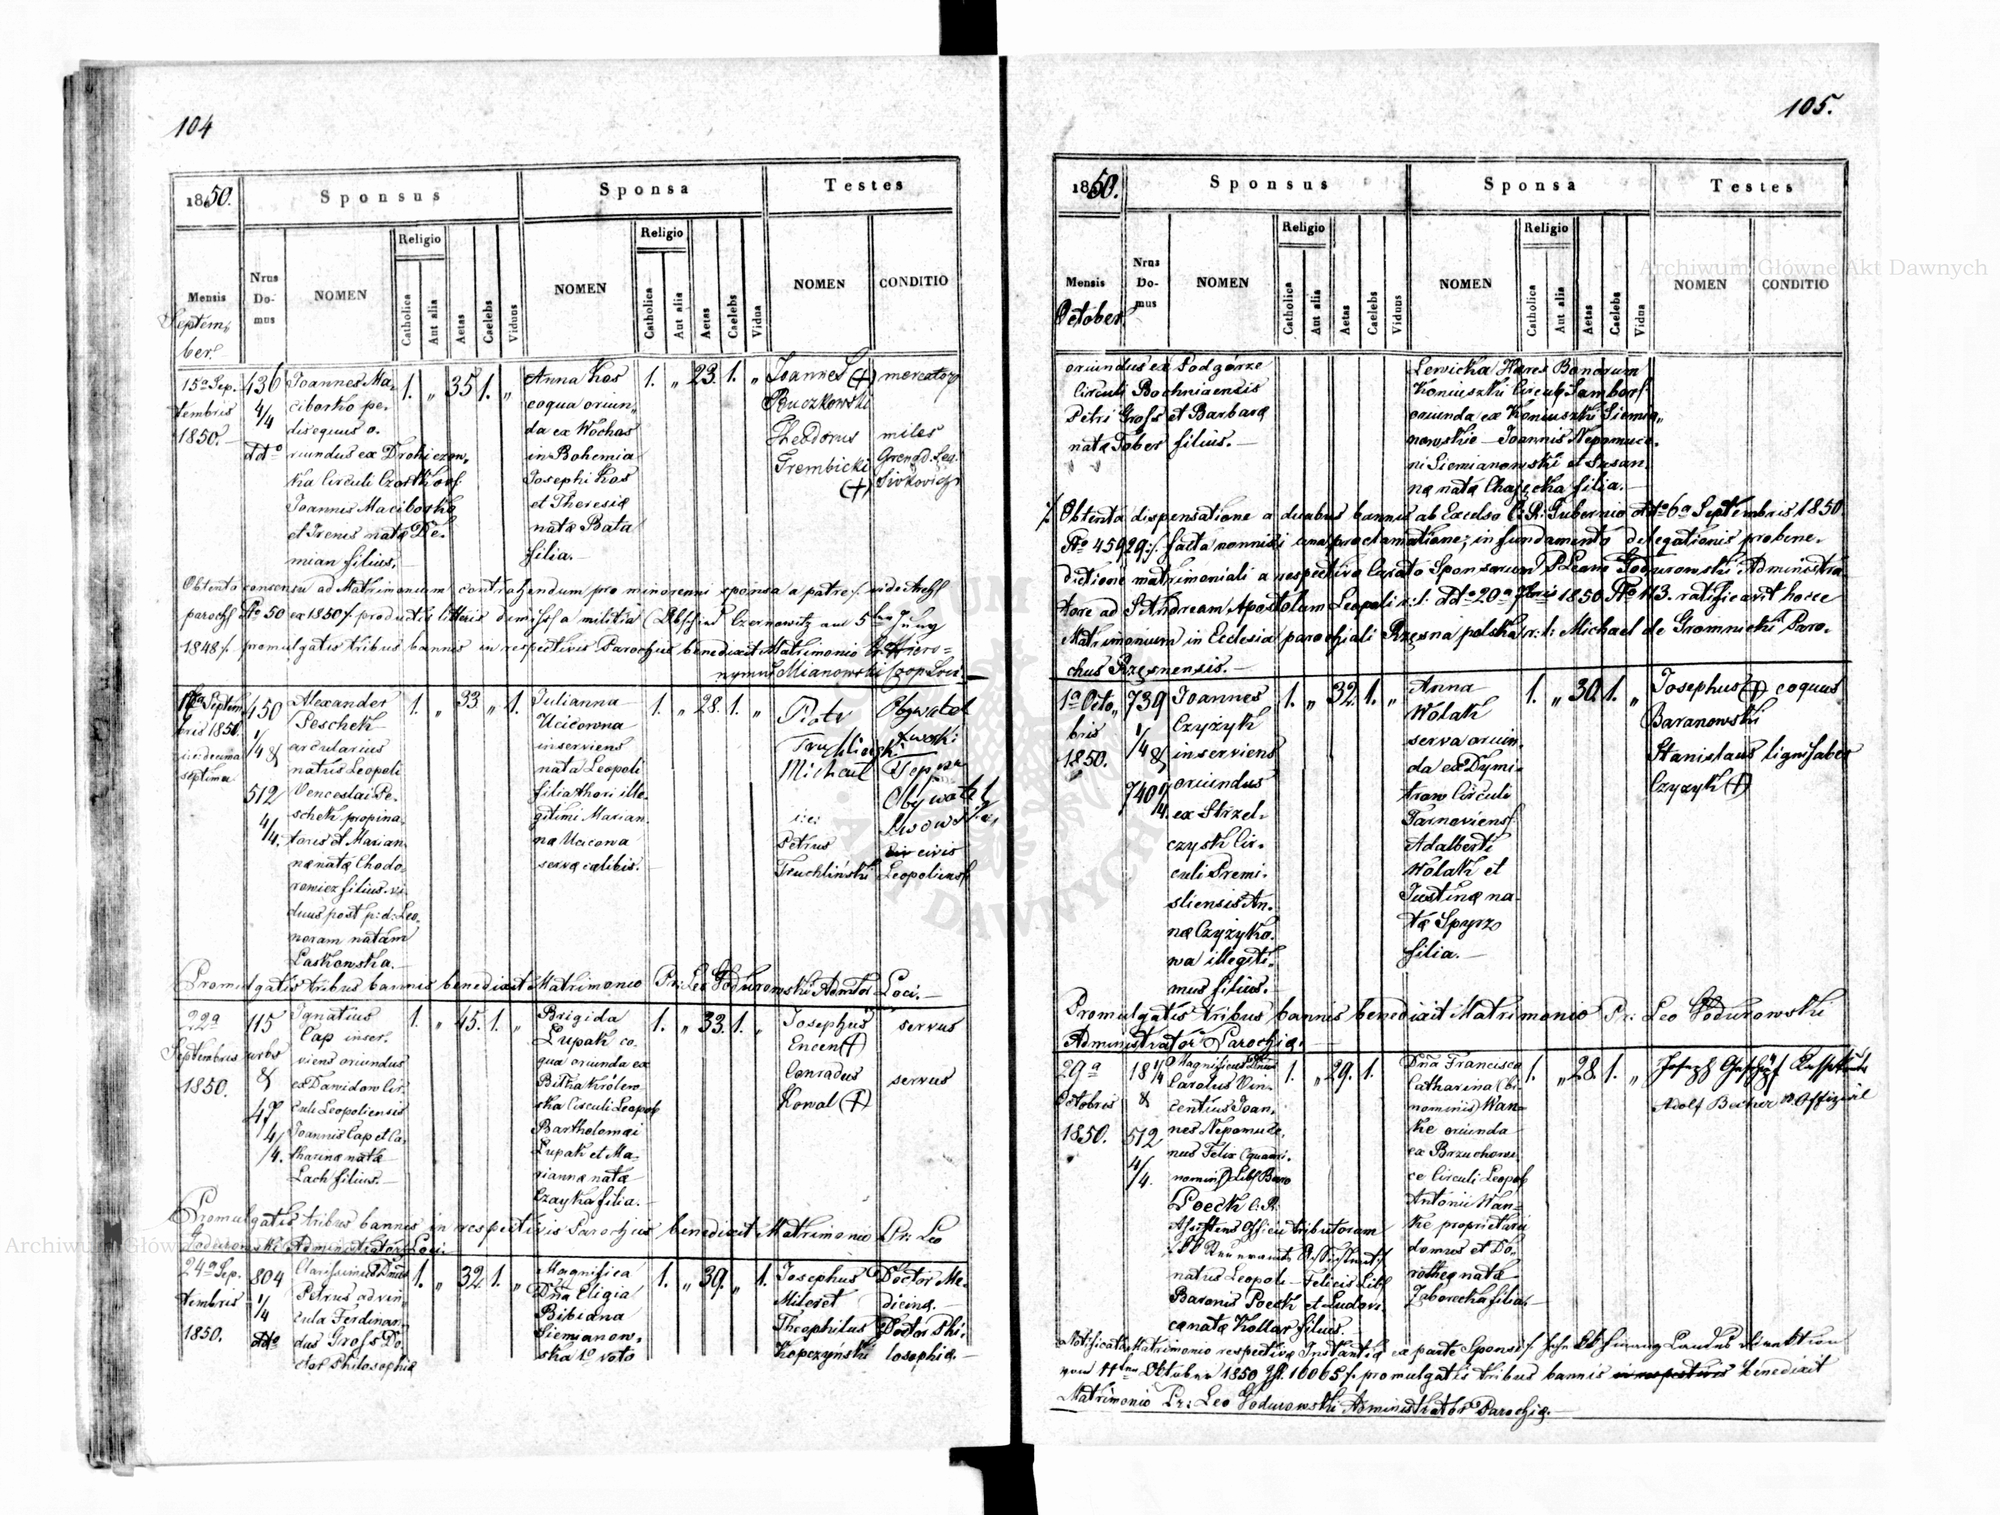 104
1850.
Sponsus
Sponsa
Testes
Mensis
Septem-
ber.
Nrus Do-mus
NOMEN
Religio
Catholica
Aut alia
Aetas
Caelebs
Viduus
NOMEN
Religio
Catholica
Aut alia
Aetas
Caelebs
Vidua
NOMEN
CONDITIO
15a Sep.
tembris
1850.
436
4/4
ddo
Joannes Ma-
ciborko pe-
disequus o-
riundus ex Drohiczow-
ka Circuli Czortkov
Joannis Maciborko
et Irenis nata De-
mian filius.
1. „ 35 1. „
Anna Kos
coqua oriun-
da ex Wochos
in Bohemia
Josephi Kos
et Theresiæ
natæ Bata
filia.
1. „ 23. 1. „
Joannes (+)
Buczkowski
Theodorus
Grembicki
(+)
mercator
miles
Grenad. Leg.
Sivkovich
Obtento consensu ad Matrimonium contrahendum pro minorenni sponsa a patre
paroch No 50 ex 1850 productis litteris dimiss a militia (Abschied Czernowitz am 5ten Juny
1848 promulgatis tribus bannis in respectivis Parochiis benedixit Matrimonio Pr. Hiero-
nymus Mianowski Coop Loci.
17a Septem
bris 1850.
i: e: decima
septima
450
1/4 &
512
4/4.
Alexander
Peschek
arcularius
natus Leopoli
Venceslai Pe-
schek propina-
toris et Marian-
næ natæ Chodo-
rowicz filius vi-
duus post p: d: Leo-
noram natam
Laskowska.
1. „ 33 „ 1.
Julianna
Ucicowna
inserviens
nata Leopoli
filia thori ille-
gitimi Marian-
næ Ucicowa
servæ cælibis.
1. „ 28. 1. „
Piotr
Truchlinski
Michael
i: e:
Petrus
Truchliński
Obywatel
Lwowski
Obywatel
Lwowski
civis
Leopoliens
Promulgatis tribus bannis benedixit Matrimonio Pr: Leo Godurowski Admtor Loci.
22a
Septembris
1850.
115
urbs
&
47
4/4.
Ignatius
Cap inser-
viens oriundus
ex Dawidow Cir-
culi Leopoliensis
Joannis Cap et Ca-
tharinæ natæ
Lach filius.
1. „ 45. 1. „
Brigida
Lupak co-
qua oriunda ex
Bilka krolew-
ska Circuli Leopol
Bartholomæi
Lupak et Ma-
riannæ natæ
Czayka filia.
1. „ 33. 1. „
Josephus
Encen (+)
Conradus
Kowal (+)
servus
servus
Promulgatis tribus bannis in respectivis Parochiis benedixit Matrimonio Pr: Leo
Godurowski Administrator Loci.
24a Sep-
tembris
1850.
804
1/4
ddo
Clarissimus Dnus
Petrus ad vin-
cula Ferdinan-
dus Gross Do-
ctor Philosophiæ
1. „ 32. 1. „
Magnifica
Dna Eligia
Bibiana
Siemianow-
ska 1o voto
1. „ 39. „ 1.
Josephus
Mileret
Theophilus
Kopczyński
Doctor Me-
dicinæ.
Doctor Phi-
losophiæ.
105.
1850.
Sponsus
Sponsa
Testes
Mensis
October
Nrus Do-mus
NOMEN
Religio
Catholica
Aut alia
Aetas
Caelebs
Viduus
NOMEN
Religio
Catholica
Aut alia
Aetas
Caelebs
Vidua
NOMEN
CONDITIO
oriundus ex Podgórze
Circuli Bochniaensis
Petri Gross et Barbaræ
natæ Tober filius.
Lewicka Hæres Bonorum
Koniuszki Circuli Sambor
oriunda ex Koniuszki Siemia-
nowskie Joannis Nepomuce-
ni Siemianowski et Susan-
næ natæ Chajęcka filia.
Obtenta dispensatione a duabus bannis ab Excelso C: R: Gubernio ddto 6a Septembris 1850
No 45929 facta nonnisi una proclamatione, in fundamento delegationis pro bene-
dictione matrimoniali a respectivo Curato Sponsorum P Leone Godurowski Administra-
tore ad S Andream Apostolum Leopoli r: l: ddto 20a 7bris 1850 No 113. ratificavit hocce
Matrimonium in Ecclesia parochiali Rzęsna polska r: l: Michael de Gromnicki Paro-
chus Rzęsnensis.
1a Octo-
bris
1850.
739
1/4 &
740 2/4.
Joannes
Czyżyk
inserviens
oriundus
ex Strzel-
czysk Cir-
culi Premi-
sliensis An-
næ Czyżyko-
wa illegiti-
mus filius.
1. „ 32. 1. „
Anna
Wolak
serva oriun-
da ex Dymi-
trow Circuli
Tarnoviens
Adalberti
Wolak et
Justinæ na-
tæ Spyrz
filia.
1. „ 30. 1. „
Josephus (+)
Baranowski
Stanislaus
Czyzyk (+)
coquus
lignifaber
Promulgatis tribus bannis benedixit Matrimonio Pr: Leo Godurowski
Administrator Parochiæ.
29a
Octobris
1850.
18 1/4
&
512
4/4.
Magnificus Dnus
Carolus Vin-
centius Joan-
nes Nepomuce-
nus Felix (quinqui-
nominis) Lib Baro
Poeck C. R.
Assistens Officii tributorum
natus Leopoli Felicis Lib
Baronis Poeck et Ludovi-
cæ natæ Kollar filius.
1. „ 29. 1.
Dna Francisca
Catharina (bi-
nominis) Wan-
ke oriunda
ex Brzuchowi-
ce Circuli Leopol
Antonii Wan-
ke proprietarii
domus et Do-
rotheæ natæ
Zaborecka filia.
1. „ 28. 1. „
Joseph
Adolf Becher
Offizial
Notificato Matrimonio respectivæ Instantiæ ex parte Sponsi
vom 11ten Oktober 1850 Zhl. 16065 promulgatis tribus bannis in respectivis benedixit
Matrimonio Pr: Leo Godurowski Administrator Parochiæ.
Archiwum Główne Akt Dawnych